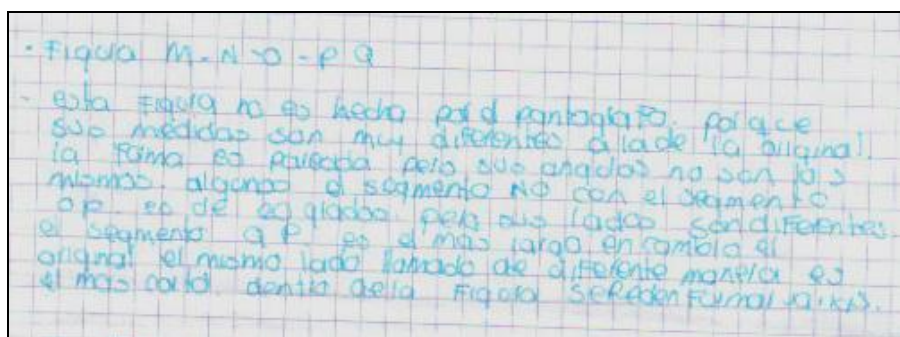 · Figura M-N-O-P Q
- esta Figura no es hecha por el pantografo. porque
sus medidas son muy diferentes a la de la original.
la forma es parecida pero sus angulos no son los
mismos. algunos el segmento NO con el segmento
OP. es de 90 grados pero sus lados son diferentes
el segmento QP es el mas largo en cambio el
original el mismo lado llamado de diferente manera es
el mas corto. dentro de la Figura se Peden Formar